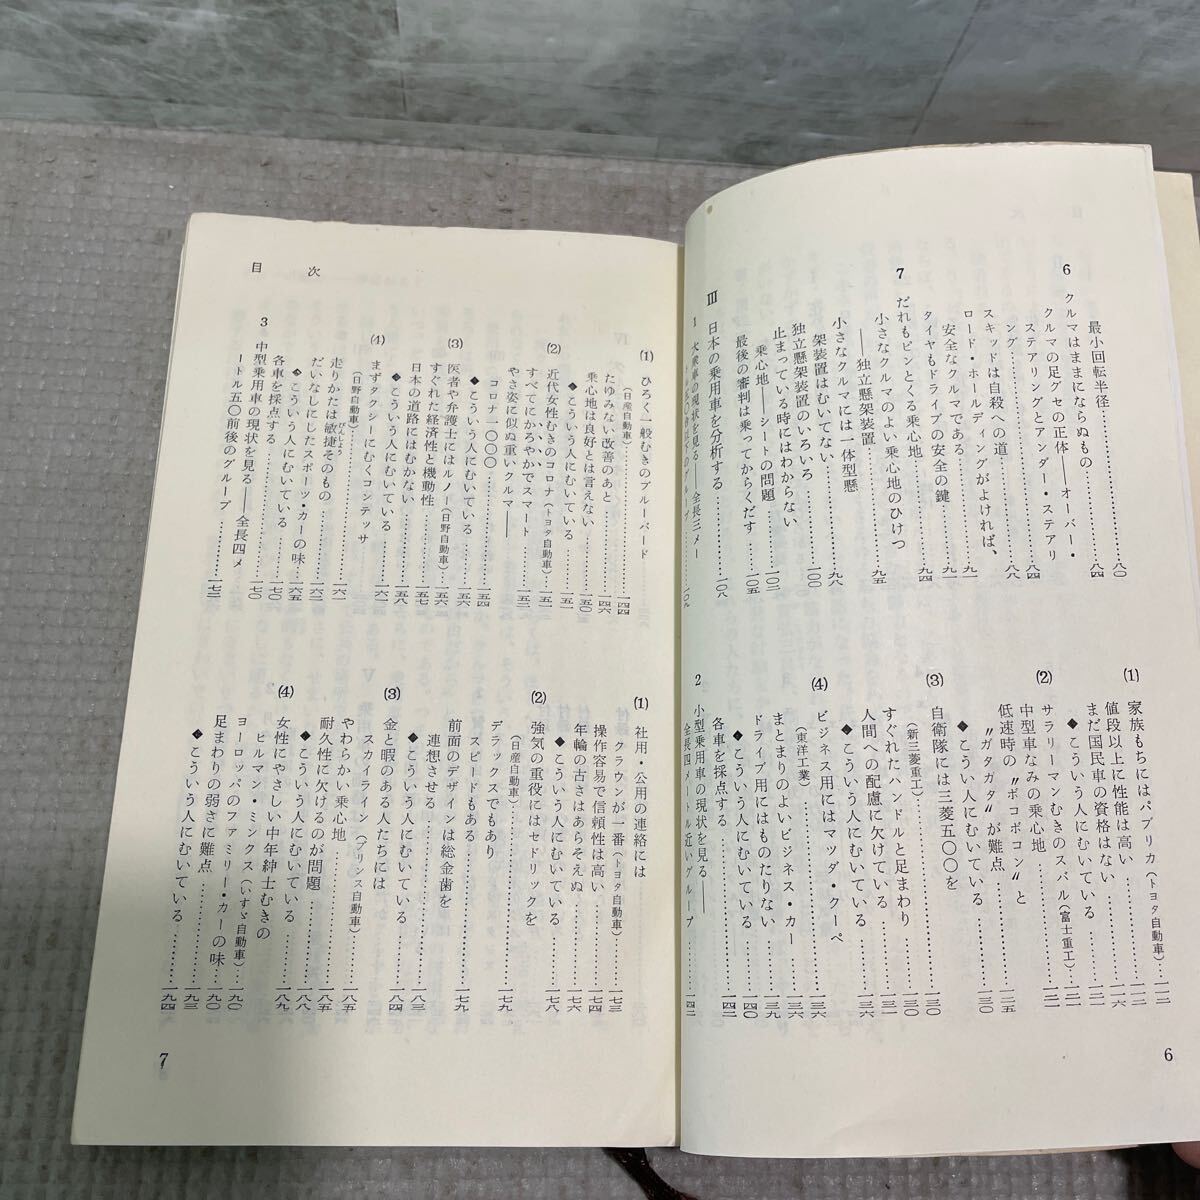 最小回転半径……八〇
6 クルマはままにならぬもの……八四
クルマの足グセの正体――オーバー・
ステアリングとアンダー・ステアリ
ング……八四
スキッドは自殺への道……八八
ロード・ホールディングがよければ、
安全なクルマである……九一
タイヤもドライブの安全の鍵……九一
7 だれもピンとくる乗心地……九四
小さなクルマのよい乗心地のひけつ
――独立懸架装置……九五
小さなクルマには一体型懸
架装置はむいてない……九八
独立懸架装置のいろいろ……一〇〇
止まっている時にはわからない
乗心地――シートの問題……一〇二
最後の審判は乗ってからくだす……一〇五
III 日本の乗用車を分析する……一〇八
1 大衆車の現状を見る――全長三メー
(1) 家族もちにはパブリカ(トヨタ自動車)…一一二
値段以上に性能は高い……一一二
まだ国民車の資格はない……一一六
◆こういう人にむいている……一二一
(2) サラリーマンむきのスバル(富士重工)…一二一
中型車なみの乗心地……一二五
低速時の〝ポコポコン〟と
〝ガタガタ〟が難点……一三〇
◆こういう人にむいている……一三〇
(3) 自衛隊には三菱五〇〇を
(新三菱重工)……一三〇
すぐれたハンドルと足まわり……一三一
人間への配慮に欠けている……一三六
◆こういう人にむいている……一三六
(4) ビジネス用にはマツダ・クーペ
(東洋工業)……一三六
まとまりのよいビジネス・カー……一三六
ドライブ用にはものたりない……一三九
◆こういう人にむいている……一四〇
各車を採点する……一四二
2 小型乗用車の現状を見る――
全長四メートル近いグループ……一四二
6
目次
(1) ひろく一般むきのブルーバード
(日産自動車)……一四四
たゆみない改善のあと……一四六
乗心地は良好とは言えない……一五〇
◆こういう人にむいている……一五一
(2) 近代女性むきのコロナ(トヨタ自動車)…一五二
すべてにかろやかでスマート……一五二
やさ姿に似ぬ重いクルマ――
コロナ一〇〇〇……一五四
◆こういう人にむいている……一五六
(3) 医者や弁護士にはルノー(日野自動車)…一五六
すぐれた経済性と機動性……一五七
日本の道路にはむかない……一五八
◆こういう人にむいている……一六一
(4) まずタクシーにむくコンテッサ
(日野自動車)……一六一
走りかたは敏捷そのもの……一六二
だいなしにしたスポーツ・カーの味…一六五
◆こういう人にむいている……一七〇
各車を採点する……一七〇
3 中型乗用車の現状を見る――全長四メ
ートル五〇前後のグループ……一七二
(1) 社用・公用の連絡には
クラウンが一番(トヨタ自動車)……一七三
操作容易で信頼性は高い……一七四
年輪の古さはあらそえぬ……一七六
◆こういう人にむいている……一七八
(2) 強気の重役にはセドリックを
(日産自動車)……一七九
デラックスでもあり
スピードもある……一七九
前面のデザインは総金歯を
連想させる……一八三
◆こういう人にむいている……一八四
(3) 金と暇のある人たちには
スカイライン(プリンス自動車)……一八五
やわらかい乗心地……一八五
耐久性に欠けるのが問題……一八八
◆こういう人にむいている……一八九
(4) 女性にやさしい中年紳士むきの
ヒルマン・ミンクス(いすゞ自動車)…一九〇
ヨーロッパのファミリー・カーの味…一九〇
足まわりの弱さに難点……一九三
◆こういう人にむいている……一九四
7